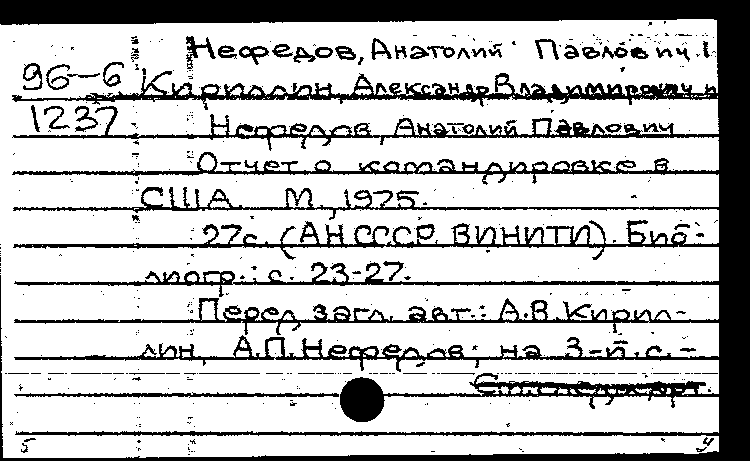 Нефедов, Анатолий Павлович.
96-6 Кириллин, Александр Владимирович и
1237 Нефедов, Анатолий Павлович
Отчет о командировке в
США. М., 1975.
27с. (АН СССР. ВИНИТИ). Биб-
лиогр.: с. 23-27.
Перед загл. авт.: А.В. Кирил-
лин, А.П. Нефедов; на 3-й с. -
См. след. карт.
5 У